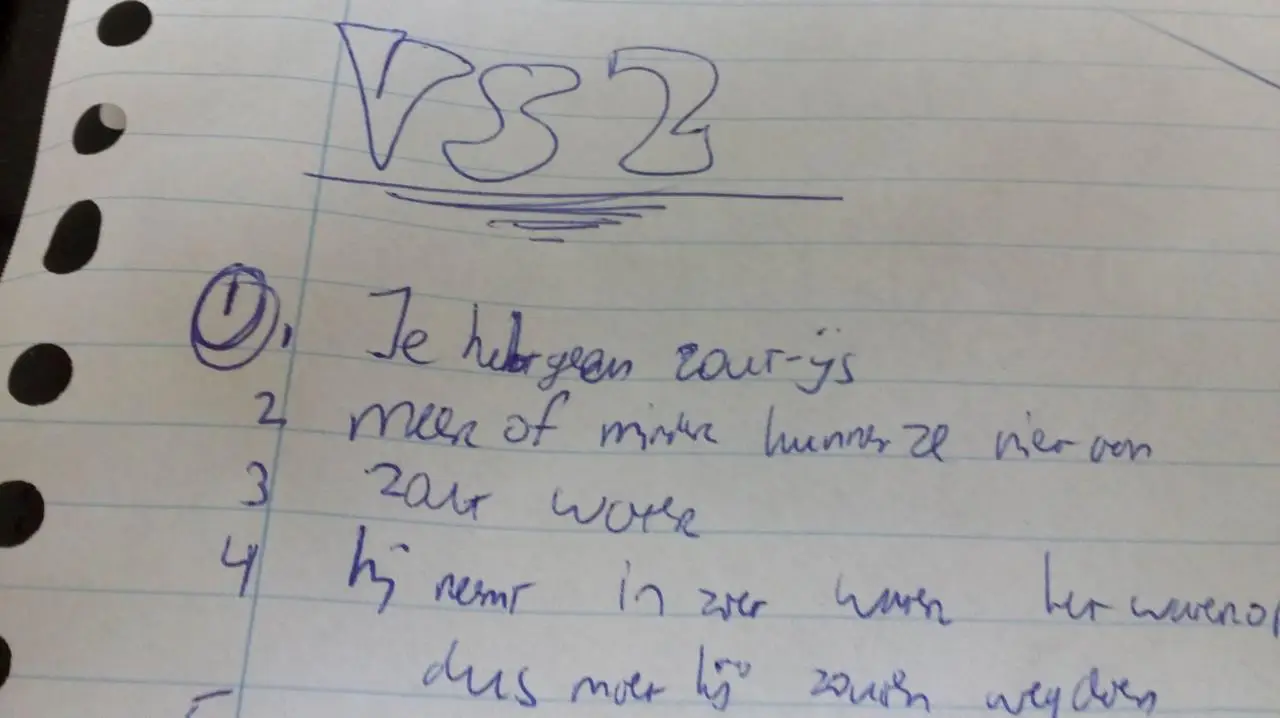 VS2
1. Je hebt geen zout-ijs
2 meer of minder kunnen ze niet van
3 zout water
4 hij neemt in zoet water het water op
dus moet hij zouten weg doen